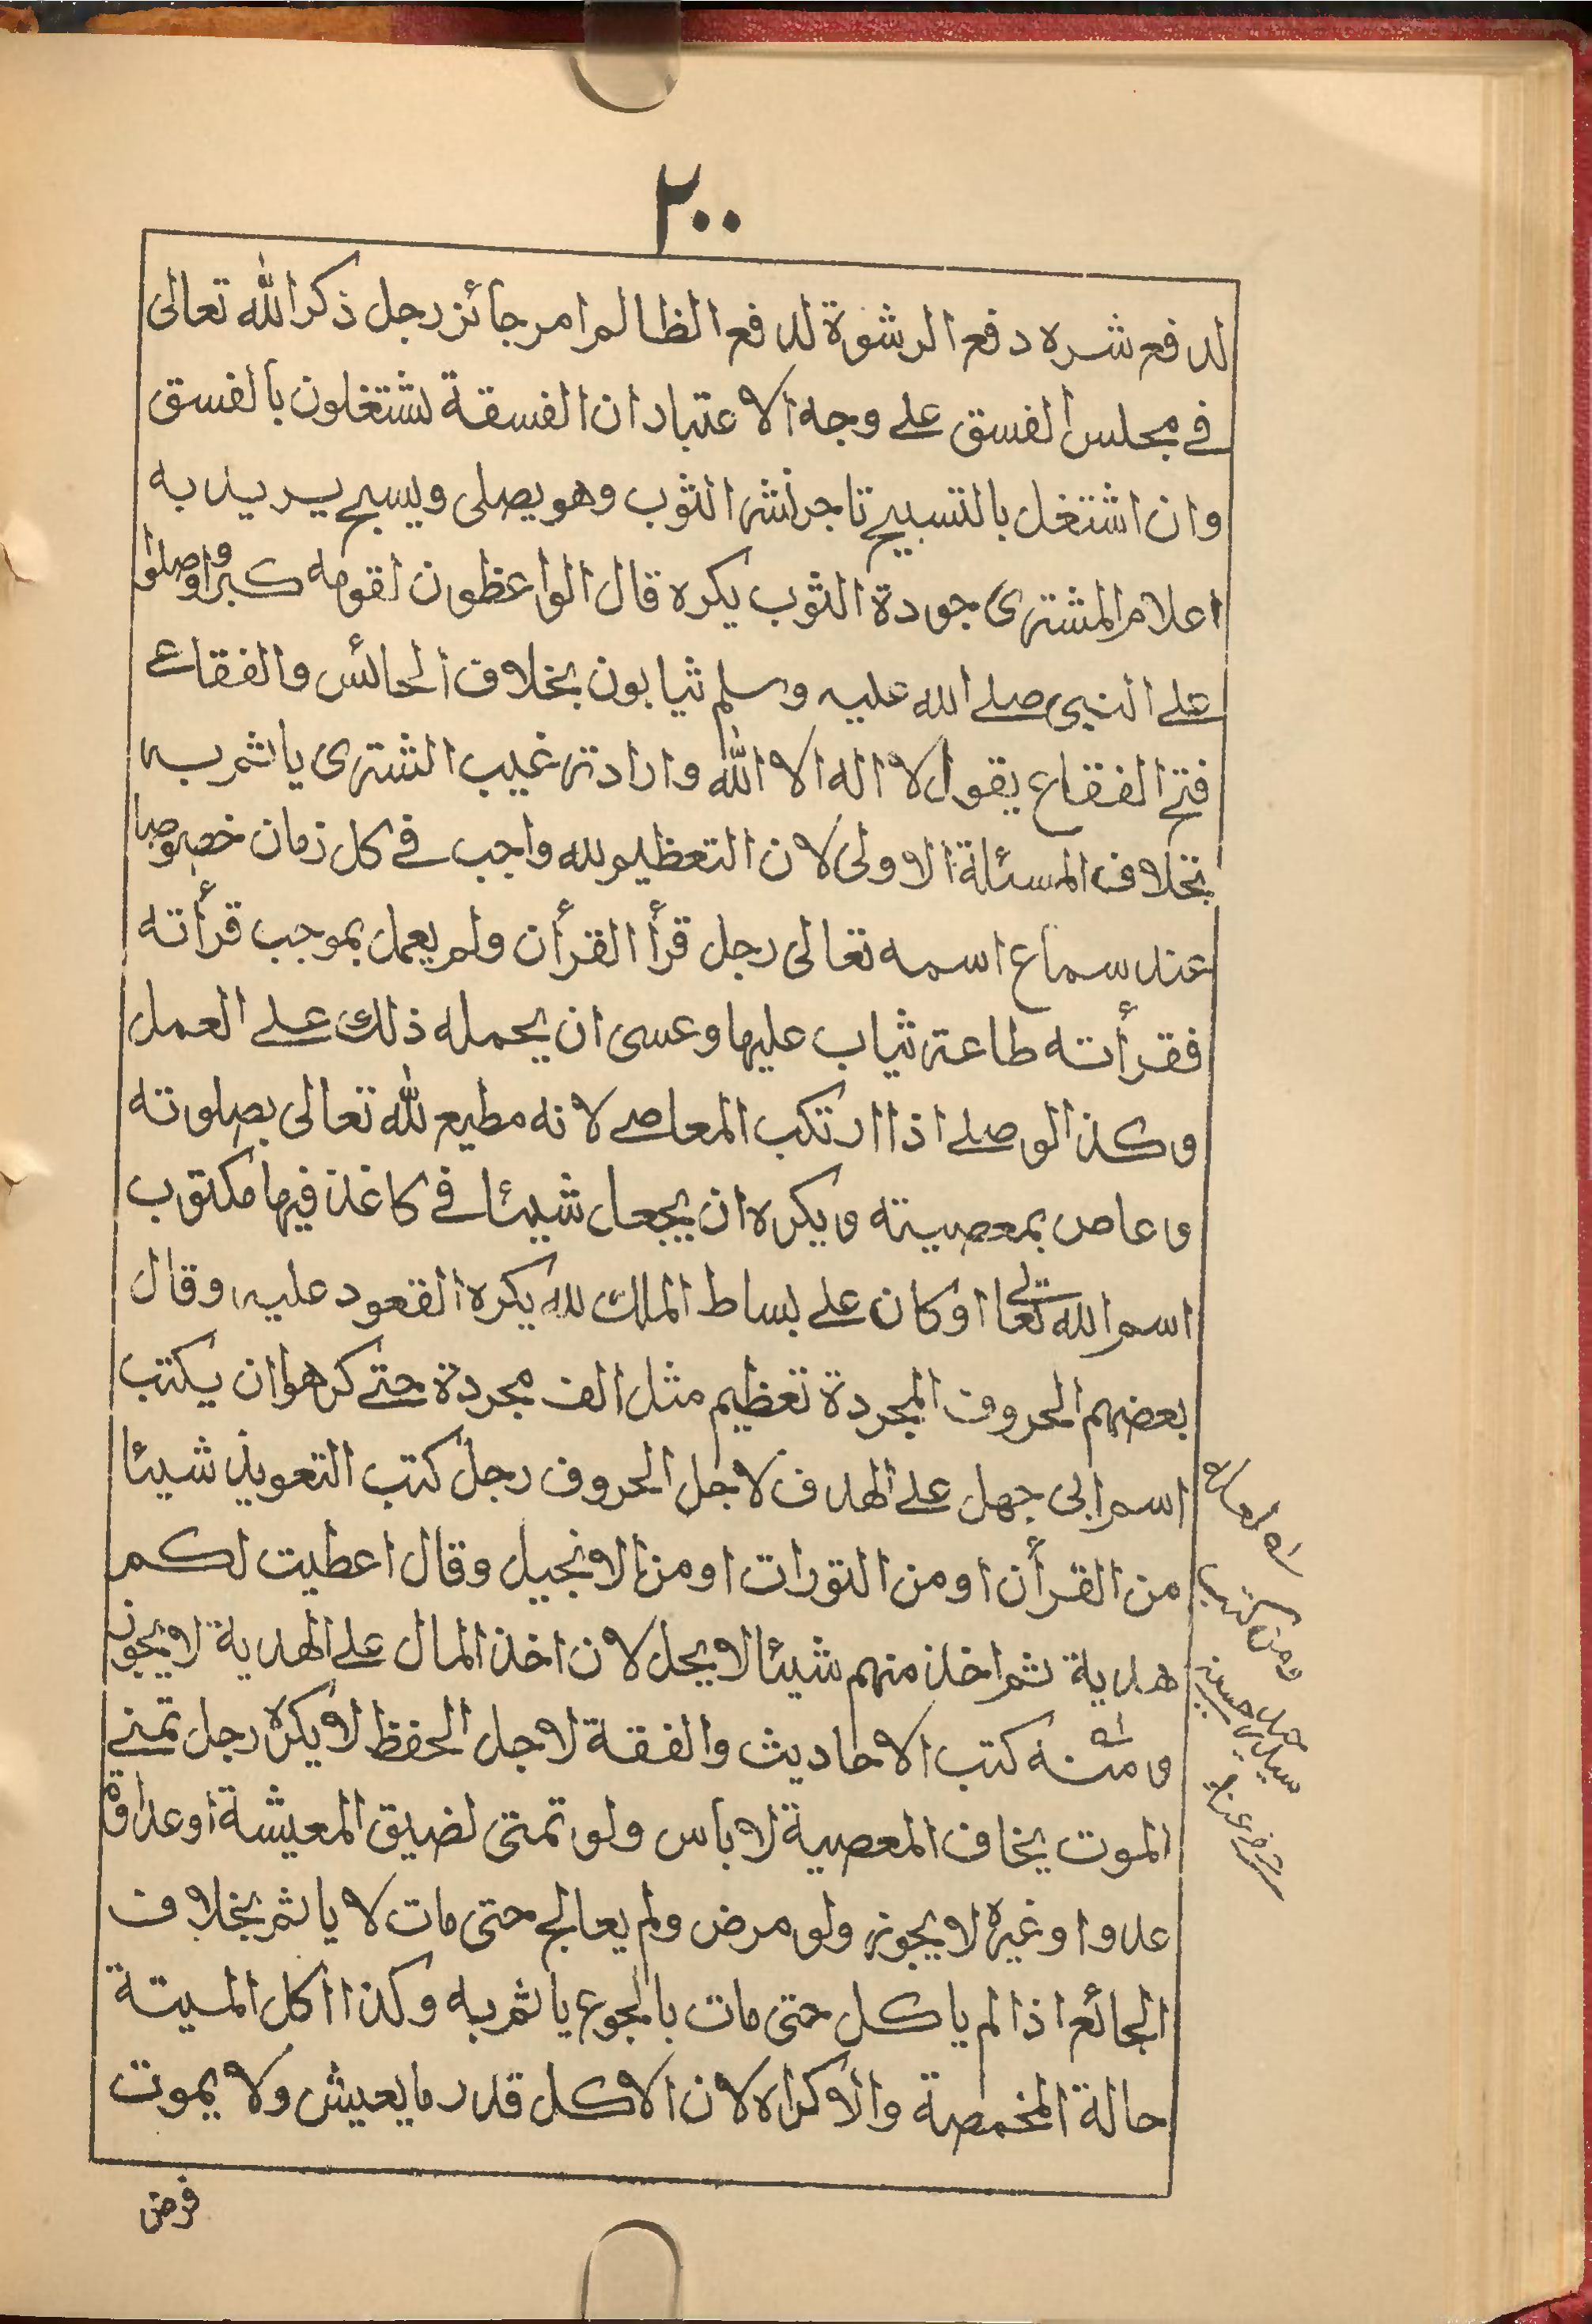 ٢٠٠
لدفع شره دفع الرشوة لدفع الظالم امر جائز رجل ذكر الله تعالى
فے مجلس الفسق علے وجه الاعتباد ان الفسقة لشتغلون بالفسق
وان اشتغل بالتسبيح تاجر نشر الثوب وهو يصلى ويسبح يريد به
اعلام المشترى جودة الثوب يكره قال الواعظون لقومه كبروا وصلوا
علے النبى صلے الله عليه وسلم ثيابون بخلاف الحائس والفقاعے
فتح الفقاع يقول لا اله الا الله واراد ترغيب الشترى ياثم به
بخلاف المسئلة الاولى لان التعظيم لله واجب فے كل زمان خصوصا
عند سماع اسمه تعالى رجل قرأ القرأن ولم يعمل بموجب قرأته
فقرأته طاعة ثياب عليها وعسى ان يحمله ذلك علے العمل
وكذا لو صلے اذا ارتكب المعاصے لانه مطيع لله تعالى بصلوته
وعاص بمعصيته ويكره ان يجعل شيئا فے كاغذ فيها مكتوب
اسم الله تعالے او كان علے بساط الملك لله يكره القعود عليه وقال
بعضهم الحروف المجردة تعظيم مثل الف مجردة حتے كرهوا ان يكتب
اسم ابى جهل علے الهدف لاجل الحروف رجل كتب التعويذ شيئا
من القرأن او من التورات او من الانجيل وقال اعطيت لكم
هدية ثم اخذ منهم شيئا لا يحل لان اخذ المال علے الهدية لا يجوز
ومثنه كتب الاحاديث والفقة لاجل الحفظ لا يكره رجل تمنے
الموت يخاف المعصية لا باس ولو تمتى لضيق المعيشة او عداوة
عدوا وغيره لا يجوز ولو مرض ولم يعالج حتى مات لا ياثم بخلاف
الجائع اذا لم ياكل حتى مات بالجوع ياثم به وكذا اكل الميتة
حالة المخمصة والاكراه لان الاكل قدر ما يعيش ولا يموت
فرض
ومن كتب